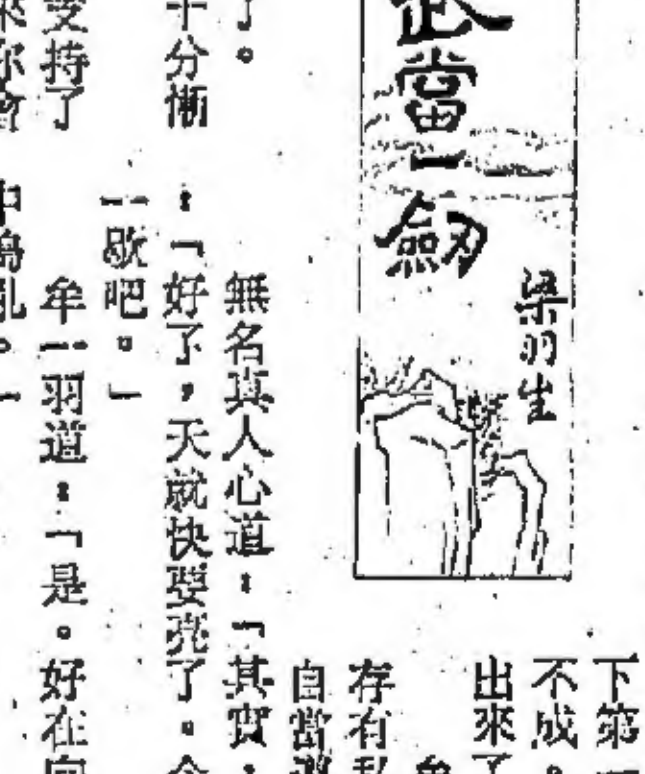 武當一劍
梁羽生
下第一
不成。
出來了
存有私
自當
無名真人心道：「其實，
：「好了，天就快要亮了。今
一歇吧。」
牟一羽道：「是。好在向
了。
十分慚
受持了
來你會
中搗亂。」